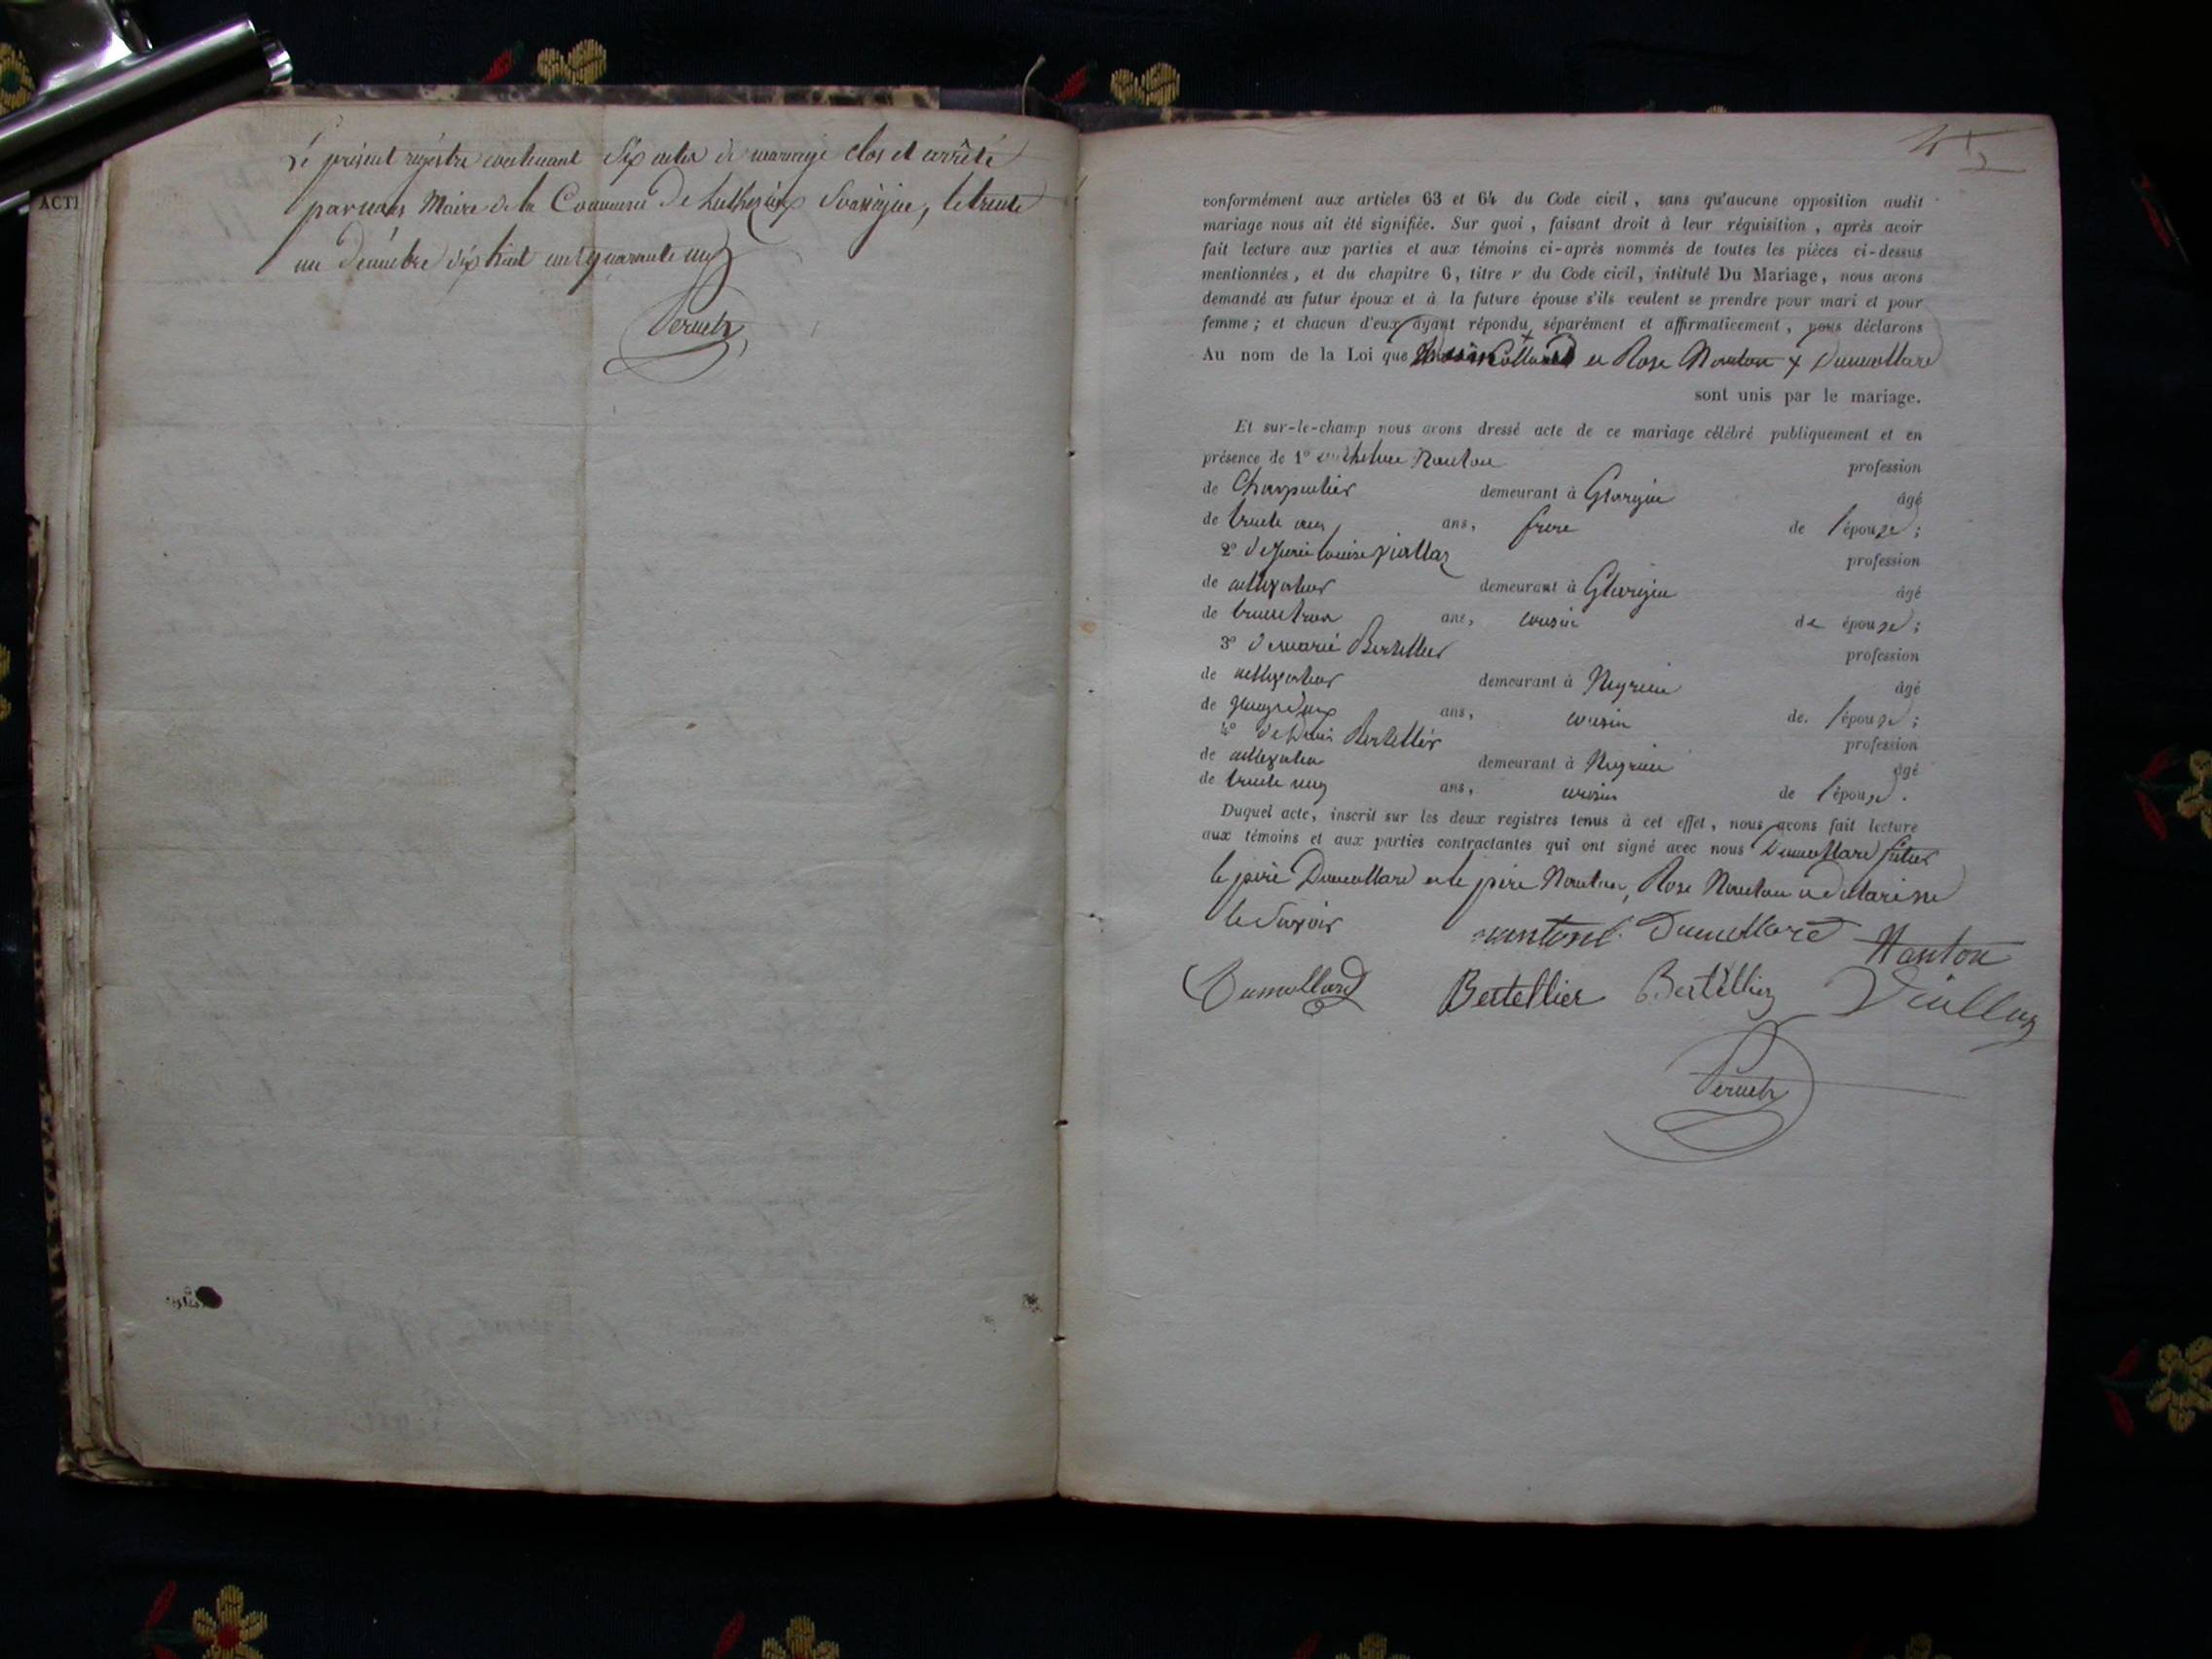 ACTE
Le présent registre contenant six actes de mariage clos et arrêté
par nous Maire de la Commune de Luthézieu Songieu, le trente
un décembre dix huit cent quarante un
Peruch
conformément aux articles 63 et 64 du Code civil, sans qu'aucune opposition audit
mariage nous ait été signifiée. Sur quoi, faisant droit à leur réquisition, après avoir
fait lecture aux parties et aux témoins ci-après nommés de toutes les pièces ci-dessus
mentionnées, et du chapitre 6, titre v du Code civil, intitulé Du Mariage, nous avons
demandé au futur époux et à la future épouse s'ils veulent se prendre pour mari et pour
femme; et chacun d'eux ayant répondu séparément et affirmativement, nous déclarons
Au nom de la Loi que et Rose Nanton x Dumollard
sont unis par le mariage.
Et sur-le-champ nous avons dressé acte de ce mariage célébré publiquement et en
présence de 1° Nanton profession
de Charpentier demeurant à âgé
de trente ans, frère de l'épouse;
2° Louise Viallaz profession
de cultivateur demeurant à âgé
de trente trois ans, cousin de épouse;
3° Bertellier profession
de cultivateur demeurant à Neyrieu âgé
de ans, cousin de l'épouse;
4° Bertellier profession
de cultivateur demeurant à Neyrieu âgé
de trente ans, cousin de l'épouse.
Duquel acte, inscrit sur les deux registres tenus à cet effet, nous avons fait lecture
aux témoins et aux parties contractantes qui ont signé avec nous Dumollard
le père Dumollard et le père Nanton, Rose Nanton a déclaré ne
le savoir
nantone Dumollard Nanton
Dumollard Bertellier Bertellier Viallaz
Peruch